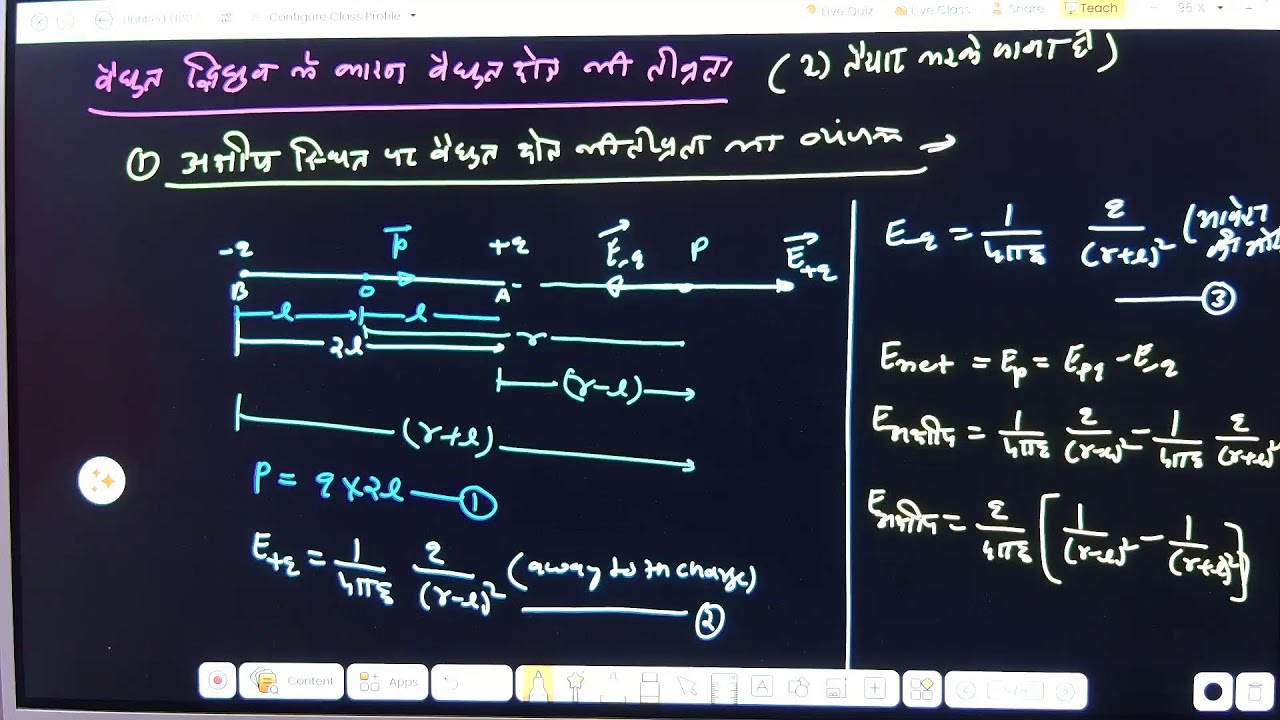 Untitled
Configure Class Profile
Live Quiz
Live Class
Share
Teach
96 %
वैद्युत द्विध्रुव के कारण वैद्युत क्षेत्र की तीव्रता
(2) तैयार करके आना है)
① अक्षीय स्थिति पर वैद्युत क्षेत्र की तीव्रता का व्यंजक →
-q p⃗ +q E⃗-q P E⃗+q
B O A
l l
2l r
(r-l)
(r+l)
P = q×2l — ①
E+q = 1/4πε q/(r-l)² (away to th charge) — ②
E-q = 1/4πε q/(r+l)² (आवेश की ओर
③
Enet = Ep = E+q - E-q
Eअक्षीय = 1/4πε q/(r-l)² - 1/4πε q/(r+l)²
Eअक्षीय = q/4πε [1/(r-l)² - 1/(r+l)²]
Content
Apps